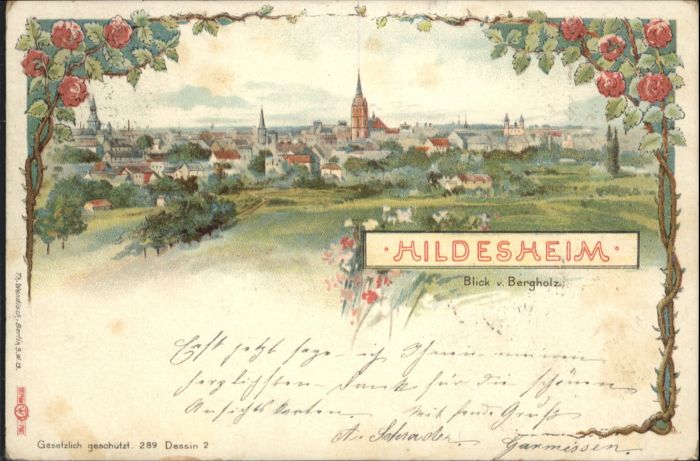 · HILDESHEIM ·
Blick v. Bergholz.
Erst jetzt sage ich Ihnen meinen
herzlichsten Dank für die schönen
Ansichtskarten. Mit Gruß
A. Schrader, Garmissen.
Gesetzlich geschützt. 289 Dessin 2
Th. Wendisch, Berlin, S.W. 13.